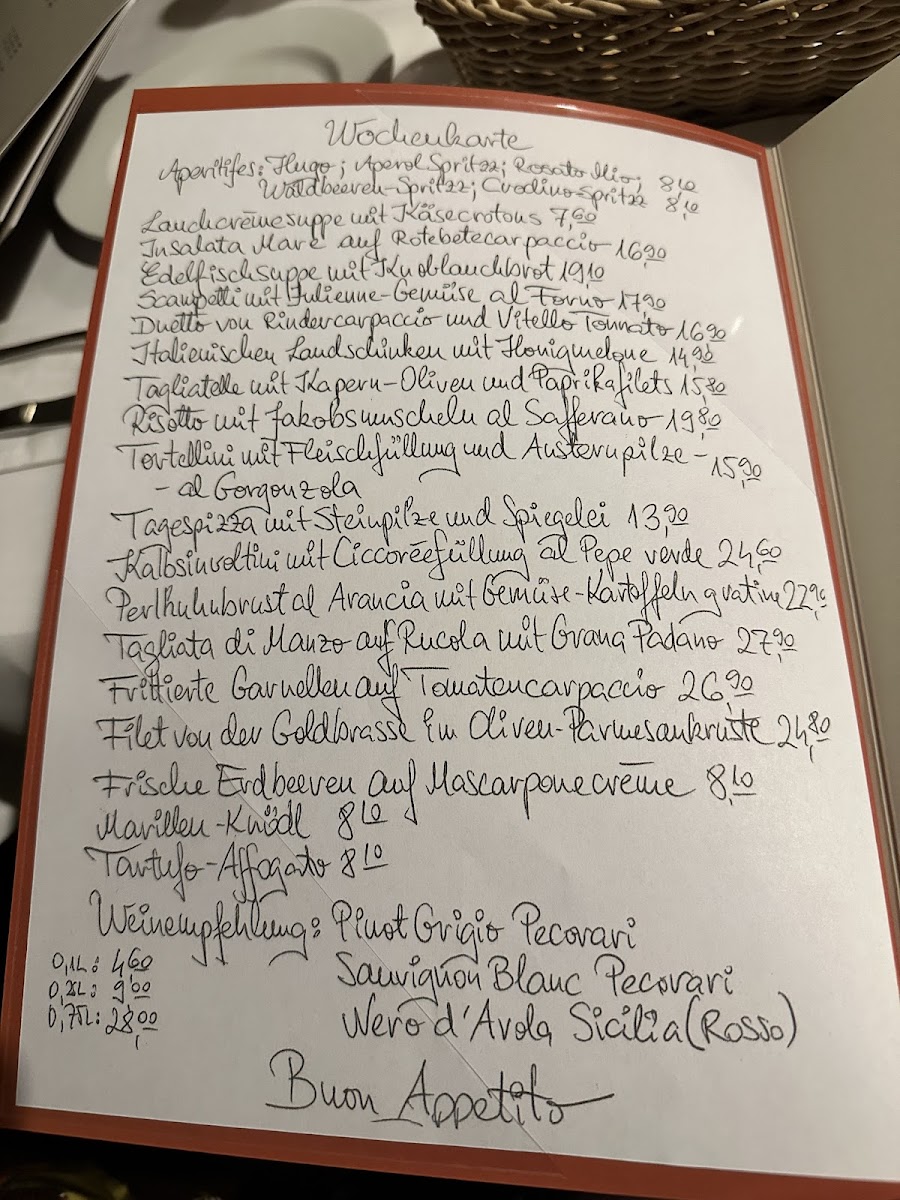 Wochenkarte
Aperitifes: Hugo; Aperol Spritzz; Rosato Mio; 8,10
Waldbeeren-Spritzz; Crodino-Spritzz 8,10
Lauchcrèmesuppe mit Käsecrotons 7,60
Insalata Mare auf Rotebetecarpaccio 16,90
Edelfischsuppe mit Knoblauchbrot 19,10
Scampetti mit Julienne-Gemüse al Forno 17,90
Duetto von Rindercarpaccio und Vitello Tonnato 16,90
Italienischen Landschinken mit Honigmelone 14,90
Tagliatelle mit Kapern-Oliven und Paprikafilets 15,80
Risotto mit Jakobsmuscheln al Safferano 19,80
Tortellini mit Fleischfüllung und Austernpilze - 15,90
- al Gorgonzola
Tagespizza mit Steinpilze und Spiegelei 13,90
Kalbsinvoltini mit Ciccoréefüllung al Pepe verde 24,60
Perlhuhnbrust al Arancia mit Gemüse-Kartoffeln gratine 22,90
Tagliata di Manzo auf Rucola mit Grana Padano 27,90
Frittierte Garnellen auf Tomatencarpaccio 26,90
Filet von der Goldbrasse im Oliven-Parmesankruste 24,80
Frische Erdbeeren auf Mascarponecrème 8,10
Marillen-Knödl 8,10
Tartufo-Affogato 8,10
Weinempfehlung: Pinot Grigio Pecorari
0,1L: 4,60
0,2L: 9,00 Sauvignon Blanc Pecorari
0,75L: 28,00 Nero d'Avola Sicilia (Rosso)
Buon Appetito